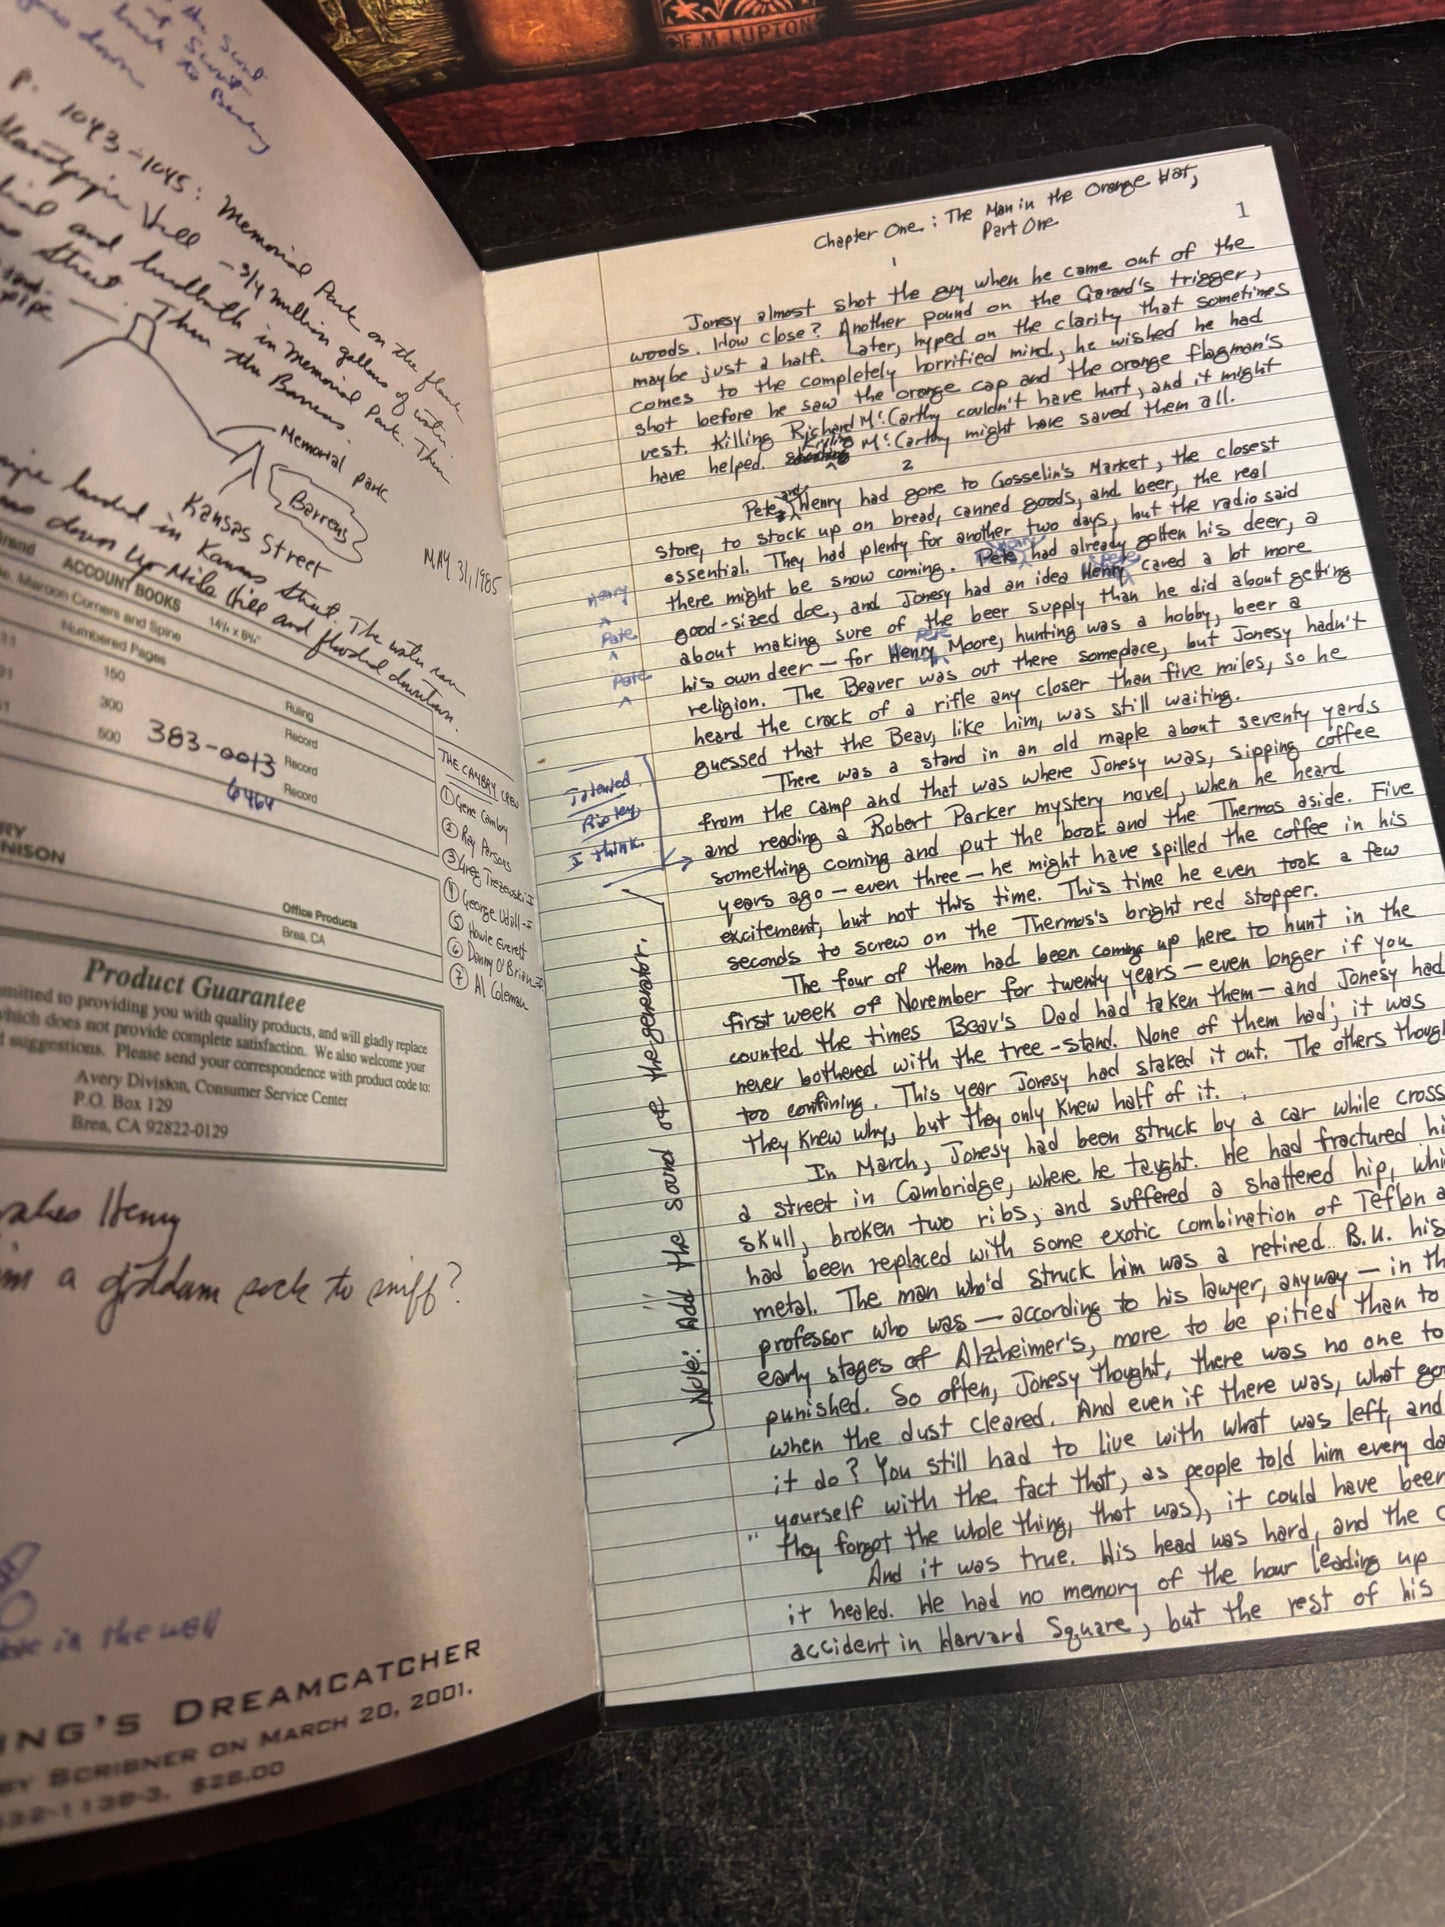 OF. M. LUPTON
the Scout
Scout
back to
Barony
down
P. 1043-1045: Memorial Park on the flank
Standpipe Hill - 3/4 million gallons of water
and birdbath in Memorial Park. Then
Street. Then the Barrens.
pipe
Memorial park
Barrens
Kansas Street
MAY 31, 1985
landed in Kansas Street. The water ran
down Up-Mile Hill and flooded downtown.
Brand
ACCOUNT BOOKS
14⅛ x 8⅝"
Maroon Corners and Spine
Numbered Pages
Ruling
150
Record
300
Record
500
Record
383-0013
6464
THE CAMBRY CREW
① Gene Cambry
② Ray Parsons
③ Greg Trezewski-I
④ George Udall-I
⑤ Howie Everett
⑥ Danny O'Brian-I
⑦ Al Coleman
NISON
Office Products
Brea, CA
Product Guarantee
mitted to providing you with quality products, and will gladly replace
which does not provide complete satisfaction. We also welcome your
suggestions. Please send your correspondence with product code to:
Avery Division, Consumer Service Center
P.O. Box 129
Brea, CA 92822-0129
Henry
a goddam sock to sniff?
in the wall
ING'S DREAMCATCHER
BY SCRIBNER ON MARCH 20, 2001.
-1138-3. $28.00
Chapter One: The Man in the Orange Hat,
Part One
1
1
Jonesy almost shot the guy when he came out of the
woods. How close? Another pound on the Garand's trigger,
maybe just a half. Later, hyped on the clarity that sometimes
comes to the completely horrified mind, he wished he had
shot before he saw the orange cap and the orange flagman's
vest. Killing Richard McCarthy couldn't have hurt, and it might
have helped. Killing McCarthy might have saved them all.
2
Pete and Henry had gone to Gosselin's Market, the closest
store, to stock up on bread, canned goods, and beer, the real
essential. They had plenty for another two days, but the radio said
there might be snow coming. Pete Henry had already gotten his deer, a
good-sized doe, and Jonesy had an idea Henry Pete cared a lot more
about making sure of the beer supply than he did about getting
his own deer — for Henry Pete Moore, hunting was a hobby, beer a
religion. The Beaver was out there someplace, but Jonesy hadn't
heard the crack of a rifle any closer than five miles, so he
guessed that the Beav, like him, was still waiting.
There was a stand in an old maple about seventy yards
from the camp and that was where Jonesy was, sipping coffee
and reading a Robert Parker mystery novel, when he heard
something coming and put the book and the Thermos aside. Five
years ago — even three — he might have spilled the coffee in his
excitement, but not this time. This time he even took a few
seconds to screw on the Thermos's bright red stopper.
The four of them had been coming up here to hunt in the
first week of November for twenty years — even longer if you
counted the times Beav's Dad had taken them — and Jonesy had
never bothered with the tree-stand. None of them had; it was
too confining. This year Jonesy had staked it out. The others though
they knew why, but they only knew half of it.
In March, Jonesy had been struck by a car while cross
a street in Cambridge, where he taught. He had fractured hi
skull, broken two ribs, and suffered a shattered hip, whi
had been replaced with some exotic combination of Teflon a
metal. The man who'd struck him was a retired B.U. his
professor who was — according to his lawyer, anyway — in th
early stages of Alzheimer's, more to be pitied than to
punished. So often, Jonesy thought, there was no one to
when the dust cleared. And even if there was, what goo
it do? You still had to live with what was left, and
yourself with the fact that, as people told him every da
" they forgot the whole thing, that was), it could have been
And it was true. His head was hard, and the c
it healed. He had no memory of the hour leading up
accident in Harvard Square, but the rest of his
Henry
Pete
Pete
Ripley,
I think.
Note: Add the sound of the generator.